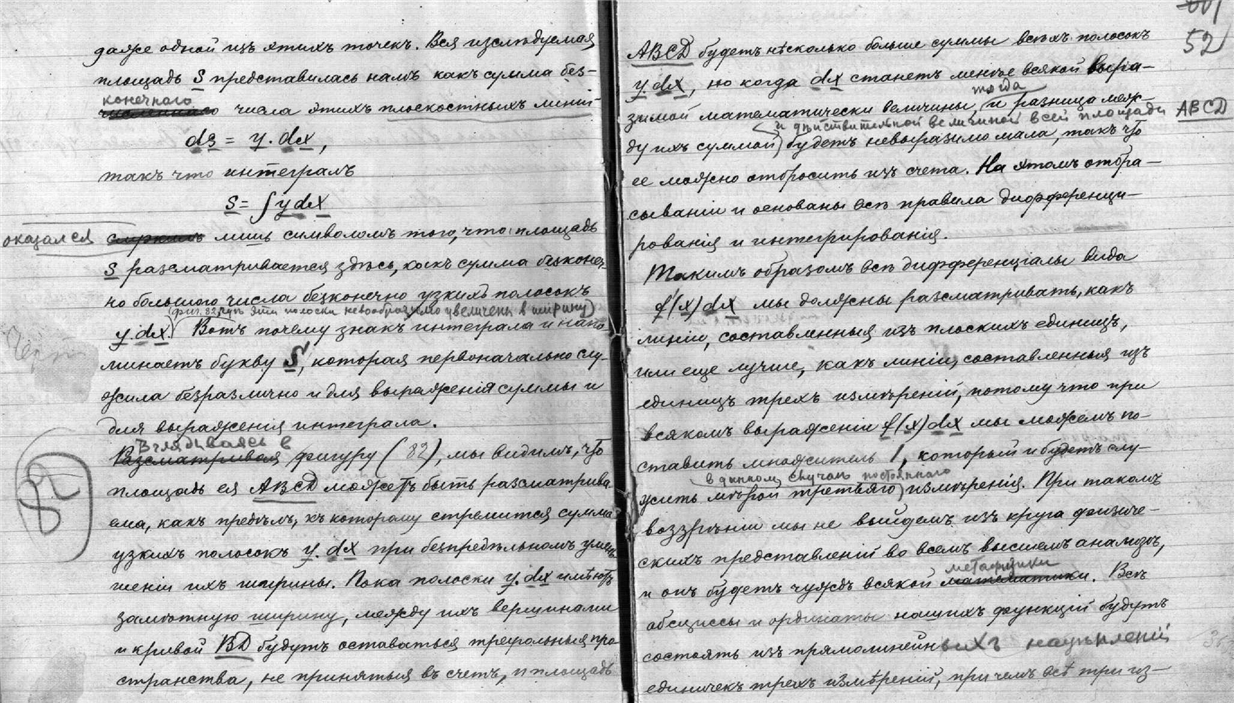 даже одной изъ этихъ точекъ. Вся изслѣдуемая
площадь S представилась намъ какъ сумма без-
конечнаго числа этихъ плоскостныхъ линій
dS = y. dx,
такъ что интегралъ
S = ∫ y dx
оказался лишь символомъ того, что площадь
S разсматривается здѣсь, какъ сумма безконеч-
но большого числа безконечно узкихъ полосокъ
(фиг. 82, гдѣ эти полоски невообразимо увеличены в ширину)
y dx. Вотъ почему знакъ интеграла и напо-
минаетъ букву S, которая первоначально слу-
жила безразлично и для выраженія суммы и
для выраженія интеграла.
Вглядываясь в фигуру (82), мы видимъ, что
площадь ея ABCD можетъ быть разсматрива-
ема, какъ предѣлъ, къ которому стремится сумма
узкихъ полосокъ y. dx при безпредѣльномъ умень-
шеніи ихъ ширины. Пока полоски y. dx имѣютъ
замѣтную ширину, между ихъ вершинами
и кривой BD будутъ оставаться треугольныя про-
странства, не принятыя въ счетъ, и площадь
82
52
ABCD будетъ нѣсколько больше суммы всѣхъ полосокъ
y dx, но когда dx станетъ менѣе всякой выра-
зимой математически величины, тогда и разница меж-
ду ихъ суммой и дѣйствительной величиной всей площади ABCD
будетъ невыразимо мала, такъ что
ее можно отбросить изъ счета. На этомъ отбра-
сываніи и основаны всѣ правила дифференци-
рованія и интегрированія.
Такимъ образомъ всѣ дифференціалы вида
f'(x) dx мы должны разсматривать, какъ
линіи, составленныя изъ плоскихъ единицъ,
или еще лучше, какъ линіи, составленныя изъ
единицъ трехъ измѣреній, потому что при
всякомъ выраженіи f'(x) dx мы можемъ по-
ставить множитель 1, который и будетъ слу-
жить мѣрой третьяго в данномъ случаѣ постояннаго измѣренія. При такомъ
воззрѣніи мы не выйдемъ изъ круга физиче-
скихъ представленій во всемъ высшемъ анализѣ,
и онъ будетъ чуждъ всякой метафизики. Всѣ
абсциссы и ординаты нашихъ функцій будутъ
состоять изъ прямолинейныхъ
единичекъ трехъ измѣреній, при чемъ всѣ три из-